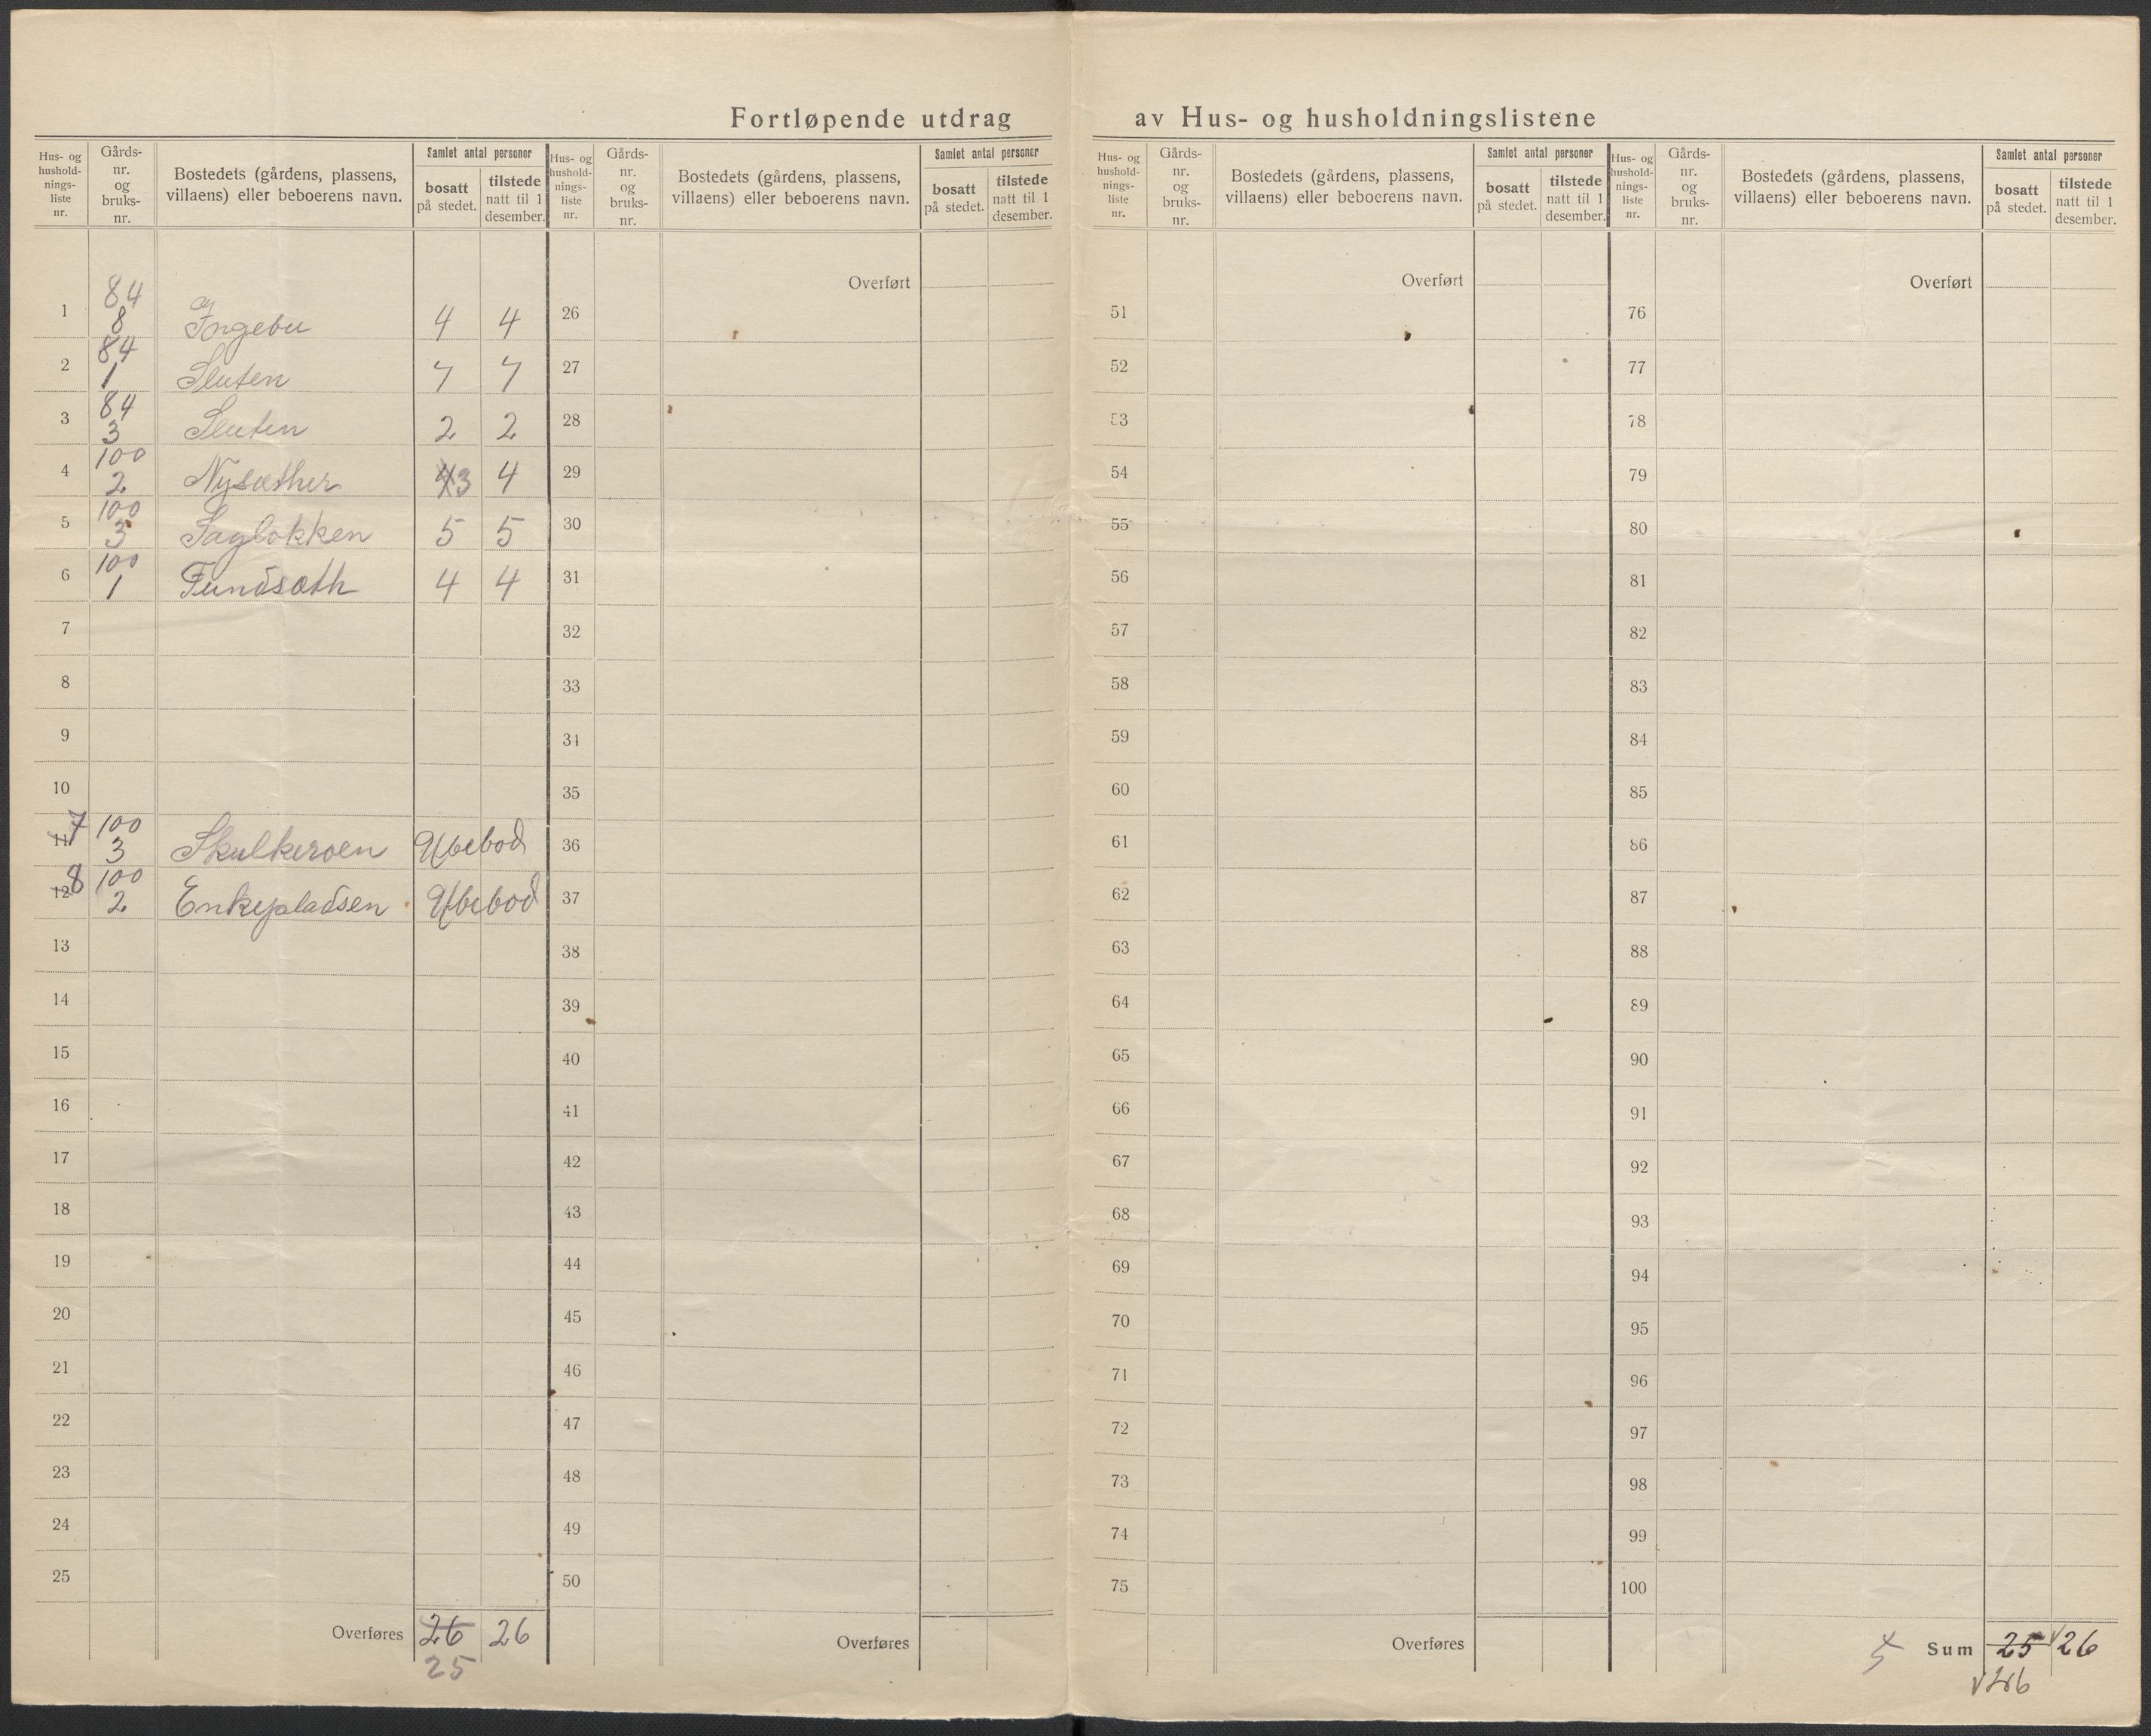 Fortløpende utdrag av Hus- og husholdningslistene
Hus- og hushold-nings-liste nr. Gårds-nr. og bruks-nr. Bostedets (gårdens, plassens, villaens) eller beboerens navn. Samlet antal personer bosatt på stedet. tilstede natt til 1 desember.
Hus- og hushold-nings-liste nr. Gårds-nr. og bruks-nr. Bostedets (gårdens, plassens, villaens) eller beboerens navn. Samlet antal personer bosatt på stedet. tilstede natt til 1 desember.
Hus- og hushold-nings-liste nr. Gårds-nr. og bruks-nr. Bostedets (gårdens, plassens, villaens) eller beboerens navn. Samlet antal personer bosatt på stedet. tilstede natt til 1 desember.
Hus- og hushold-nings-liste nr. Gårds-nr. og bruks-nr. Bostedets (gårdens, plassens, villaens) eller beboerens navn. Samlet antal personer bosatt på stedet. tilstede natt til 1 desember.
Overført Overført Overført
1 84 8 Ingebu 4 4 26 51 76
2 84 1 Sluten 7 7 27 52 77
3 84 3 Sluten 2 2 28 53 78
4 100 2 Nysæther 4 3 4 29 54 79
5 100 3 Sagløkken 5 5 30 55 80
6 100 1 Fundsæth 4 4 31 56 81
7 32 57 82
8 33 58 83
9 34 59 84
10 35 60 85
11 7 100 3 Skulkeroen Ubebod 36 61 86
12 8 100 2 Enkepladsen Ubebod 37 62 87
13 38 63 88
14 39 64 89
15 40 65 90
16 41 66 91
17 42 67 92
18 43 68 93
19 44 69 94
20 45 70 95
21 46 71 96
22 47 72 97
23 48 73 98
24 49 74 99
25 50 75 100
Overføres 26 26 Overføres Overføres Sum 25 26
25 26